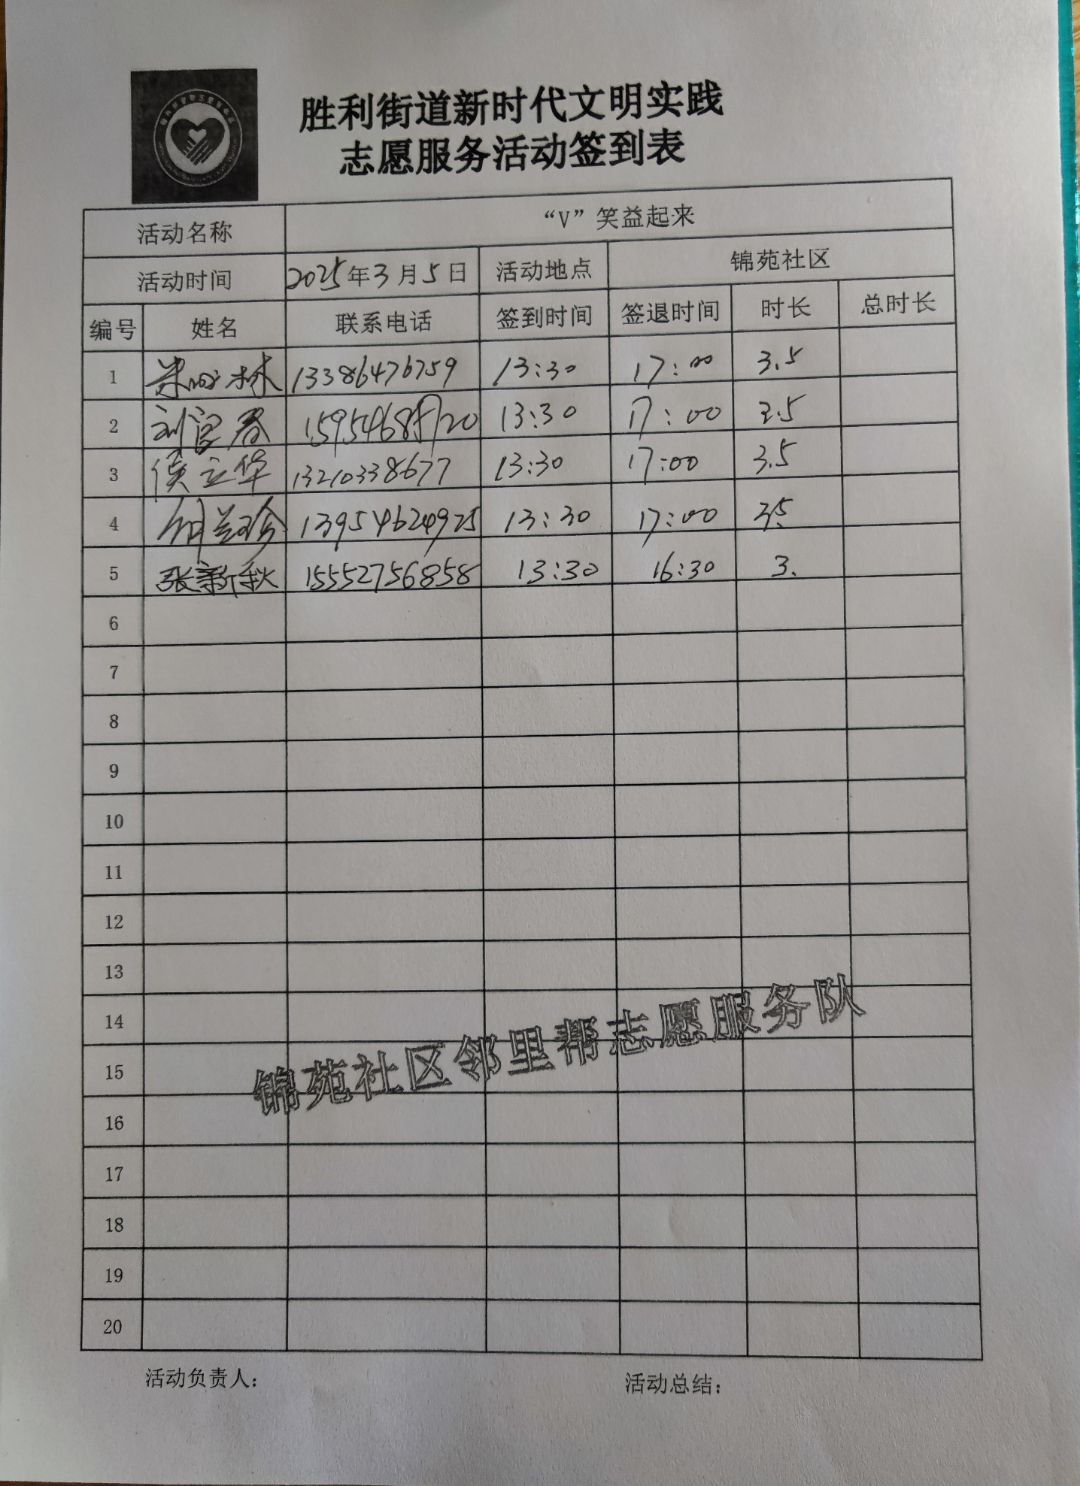 胜利街道新时代文明实践
志愿服务活动签到表
活动名称 “V”笑益起来
活动时间 2025年3月5日 活动地点 锦苑社区
编号 姓名 联系电话 签到时间 签退时间 时长 总时长
1 13386476759 13:30 17:00 3.5
2 刘官春 13:30 17:00 3.5
3 侯立华 13210338677 13:30 17:00 3.5
4 13954624925 13:30 17:00 3.5
5 张新秋 15552756858 13:30 16:30 3.
6
7
8
9
10
11
12
13
14
15
16
17
18
19
20
锦苑社区邻里帮志愿服务队
活动负责人: 活动总结: